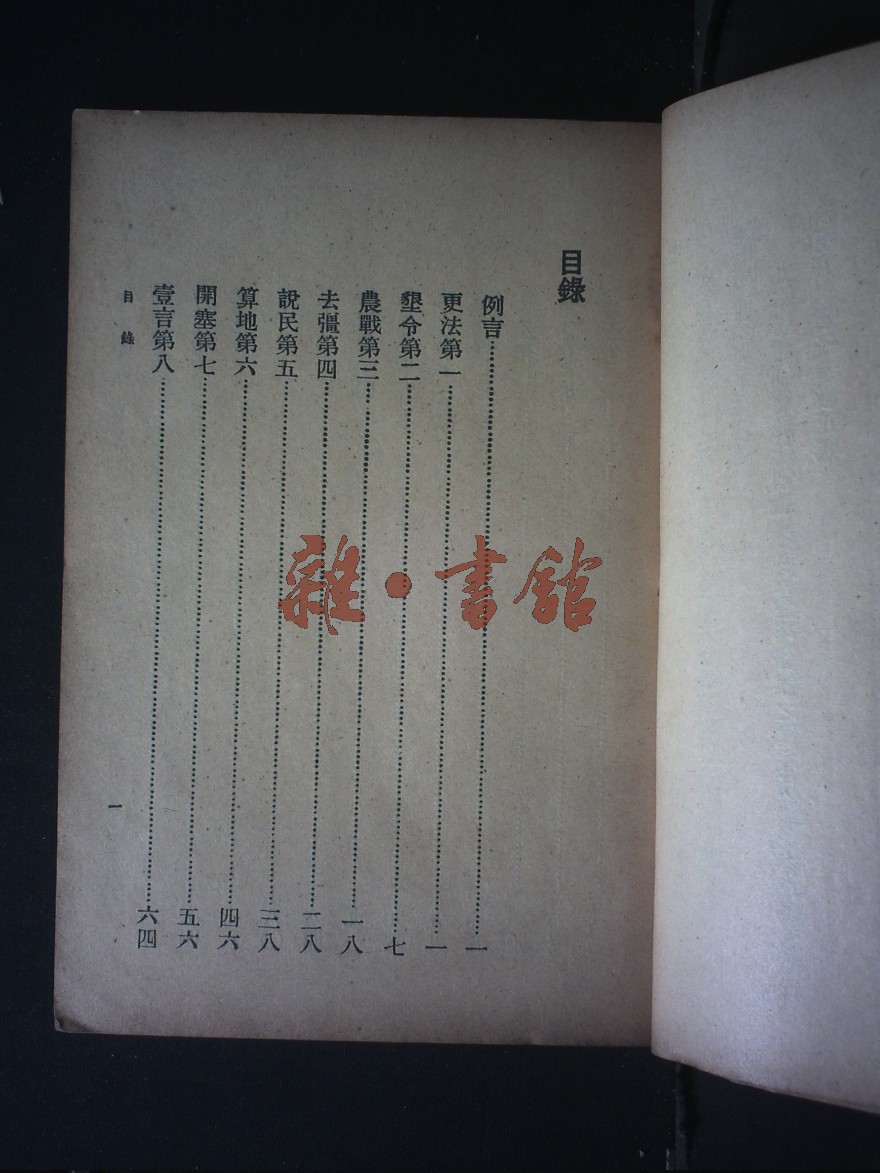 目錄
例言…………一
更法第一…………一
墾令第二…………七
農戰第三…………一八
去彊第四…………二八
說民第五…………三八
算地第六…………四六
開塞第七…………五六
壹言第八…………六四
目錄
一
雜·書館